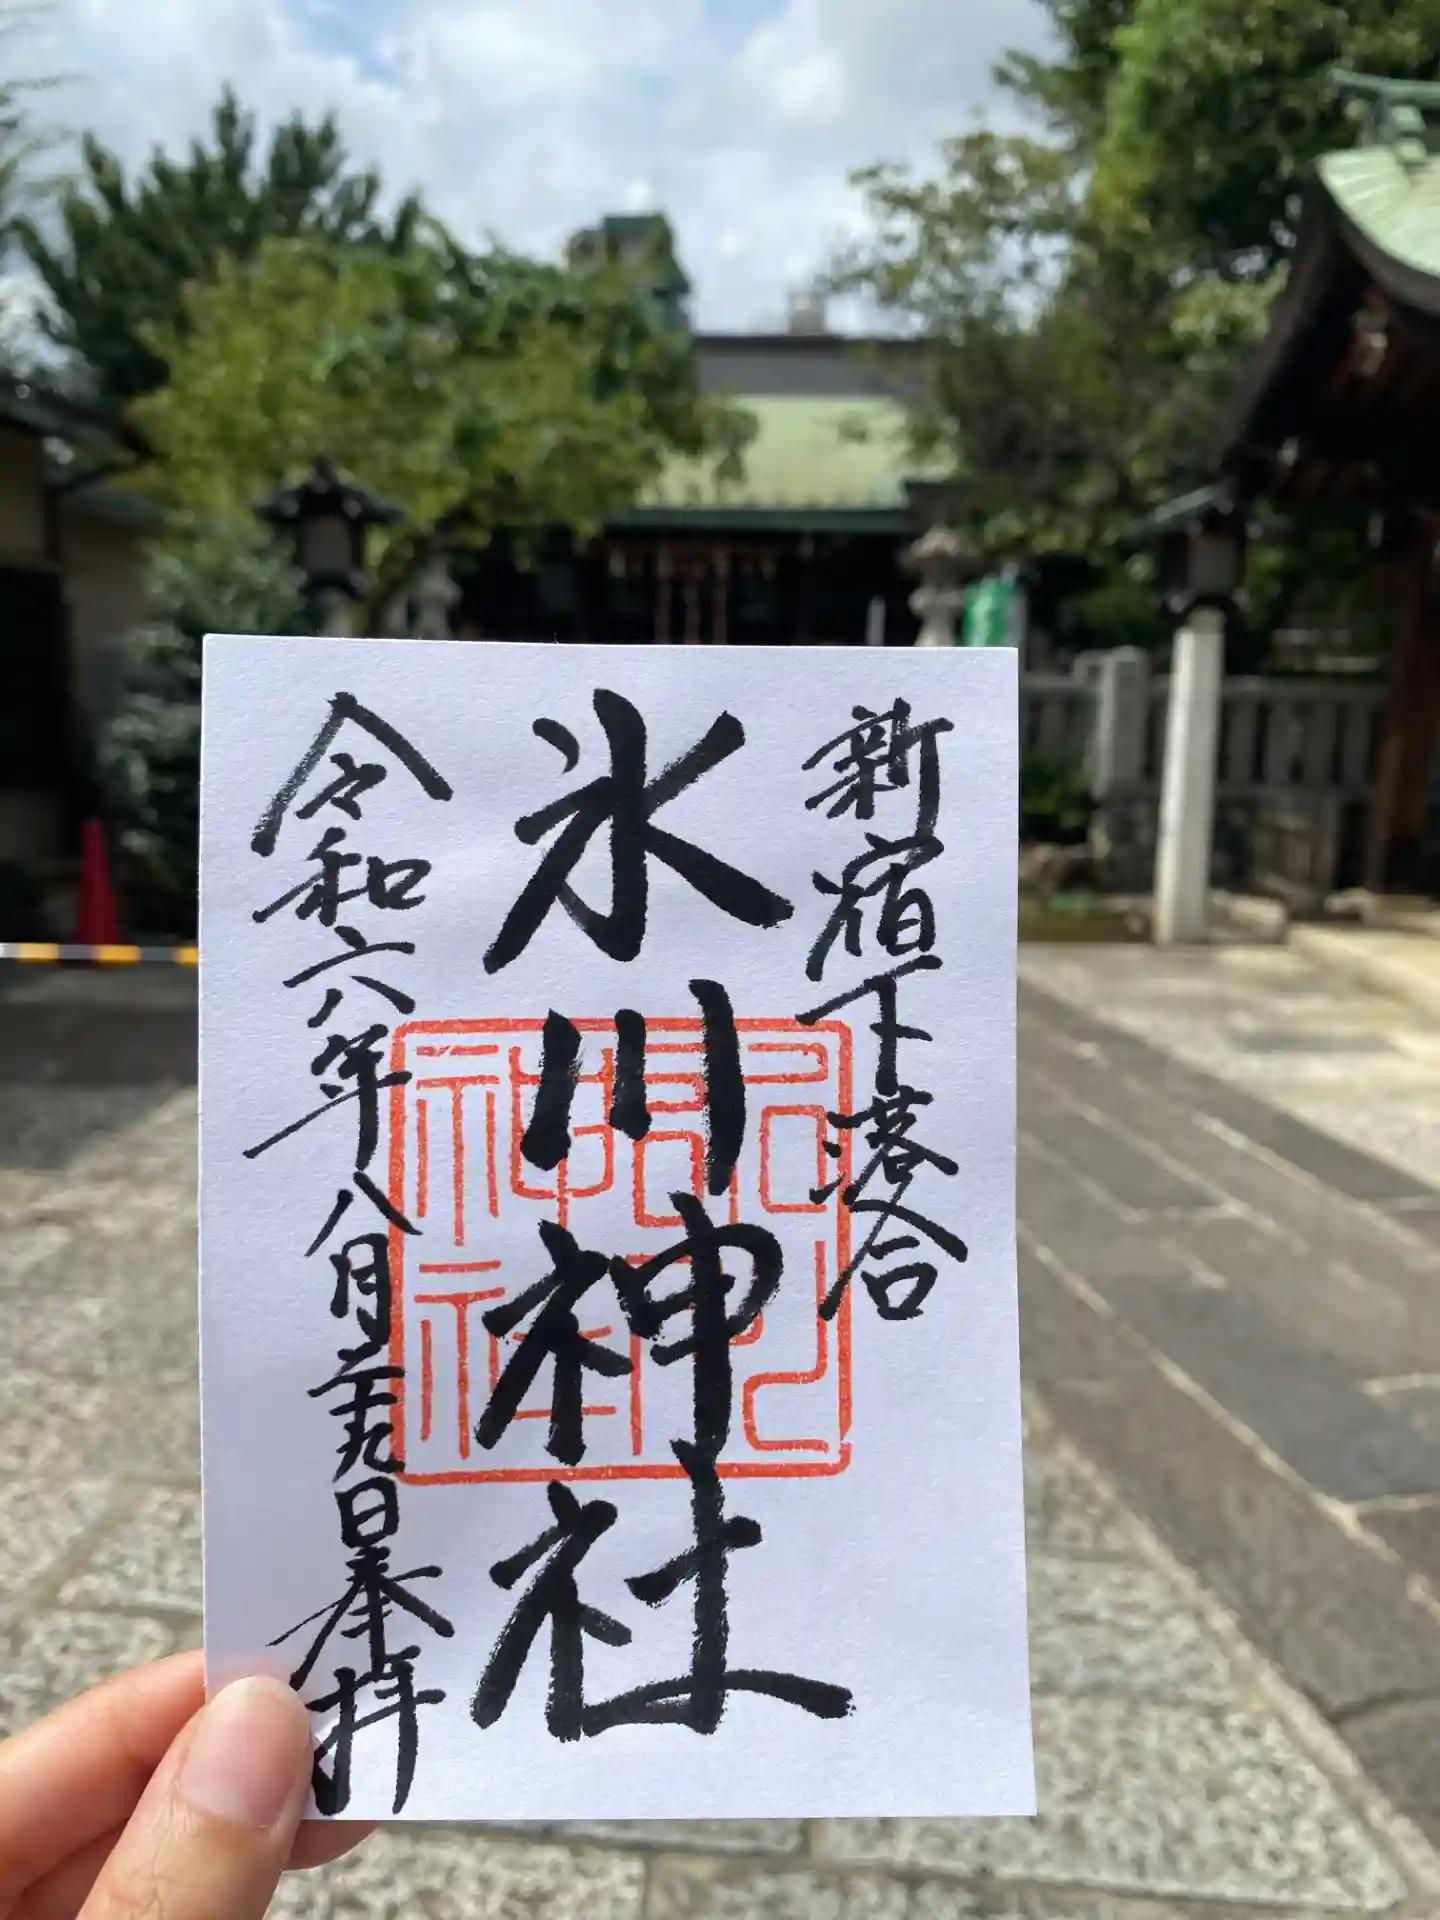 新宿下落合
氷川神社
令和六年八月二十九日奉拝